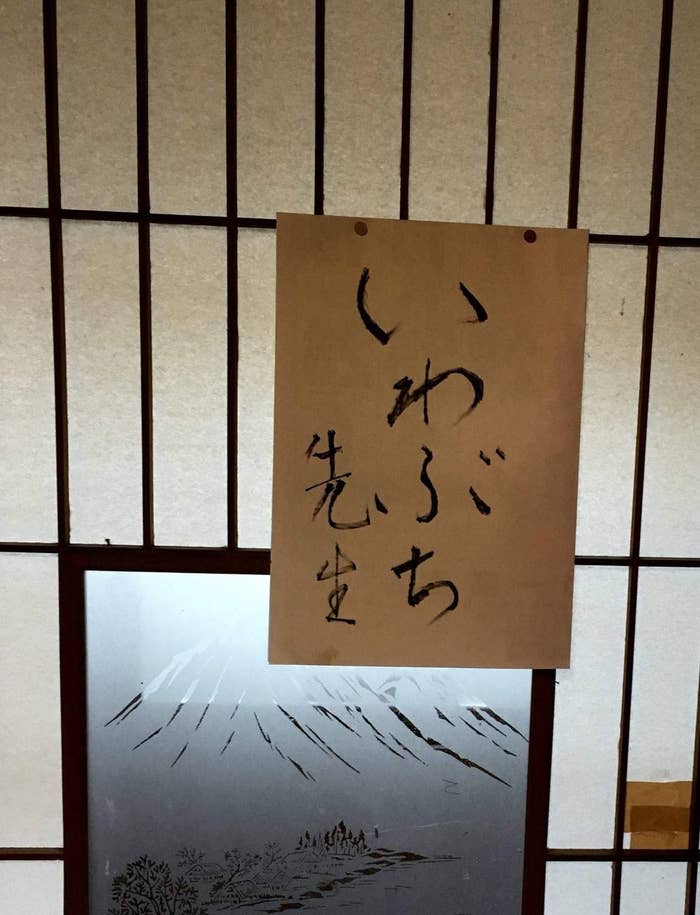 いわぶち
先生